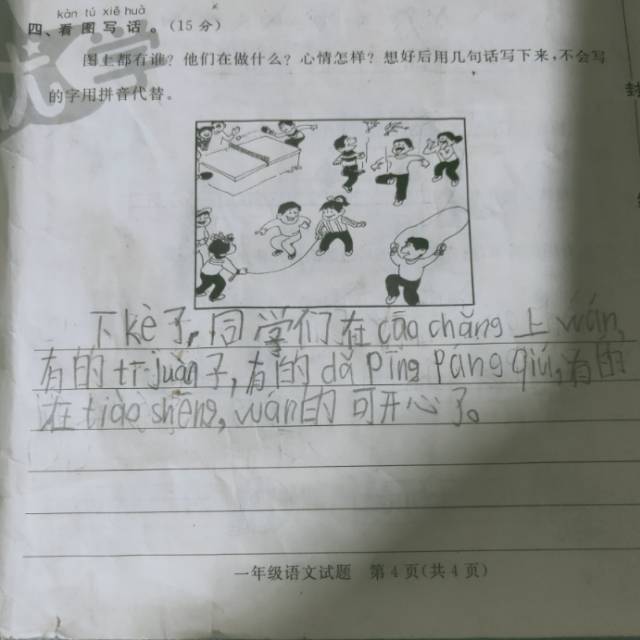 kàn tú xiě huà
四、看图写话。(15分)
图上都有谁?他们在做什么?心情怎样?想好后用几句话写下来,不会写
的字用拼音代替。
下kè了,同学们在cāo chǎng上wán,
有的tī juàn子,有的dǎ pīng pāng qiú,有的
在tiào shéng,wán的可开心了。
一年级语文试题 第4页(共4页)